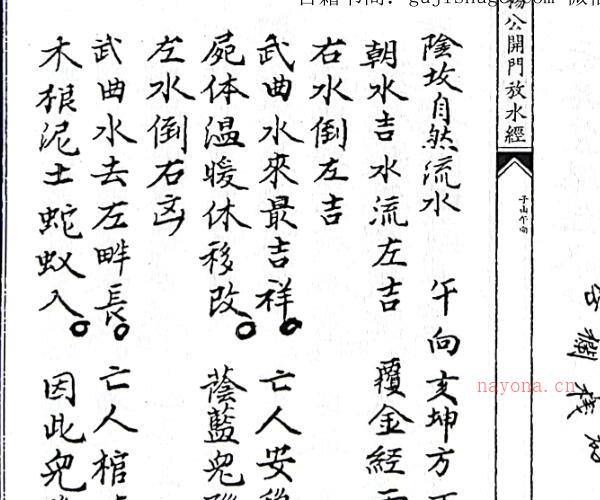 楊公開門放水經
子山午向
陰坟自然流水 午向亥坤方
朝水吉水流左吉 覆金經
右水倒左吉
武曲水來最吉祥。亡人安
屍体温暖休移改。蔭藍兒
左水倒右
武曲水去左畔長。亡人棺
木根泥土蛇蚁入。因此兒
nayona.cn